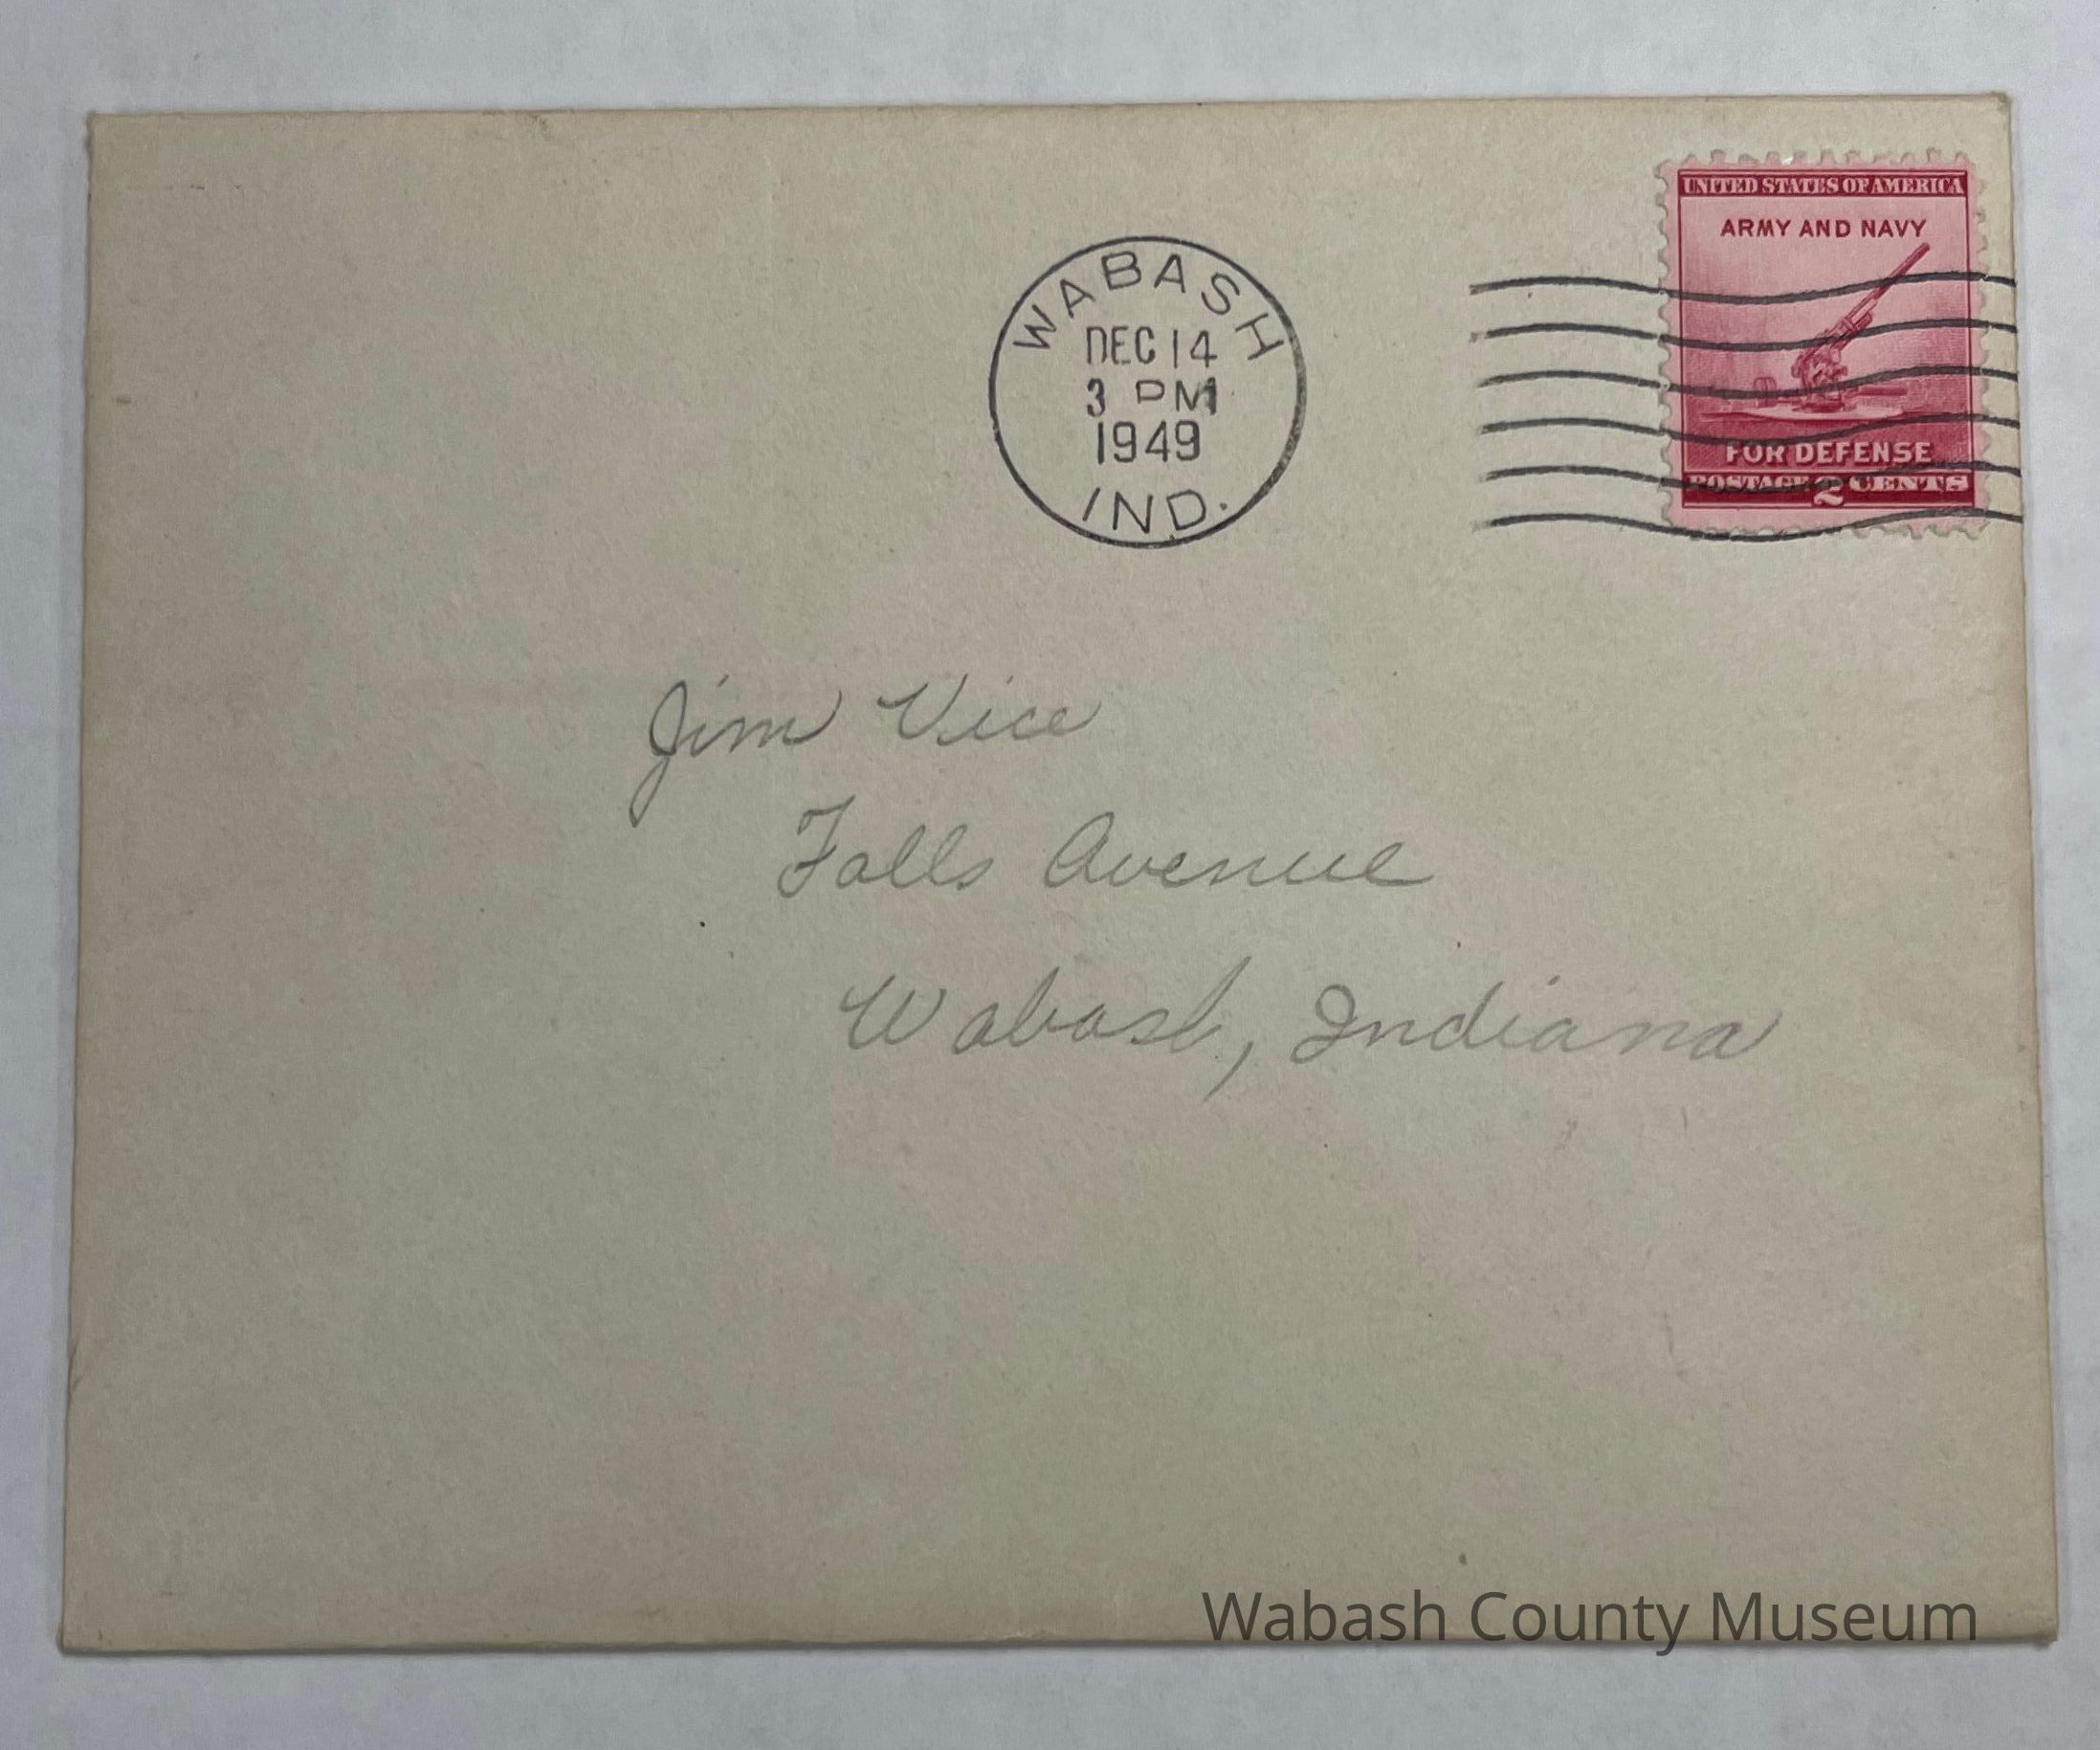 WABASH
DEC 14
3 PM
1949
IND.
UNITED STATES OF AMERICA
ARMY AND NAVY
FOR DEFENSE
POSTAGE 2 CENTS
Jim Vice
Falls Avenue
Wabash, Indiana
Wabash County Museum